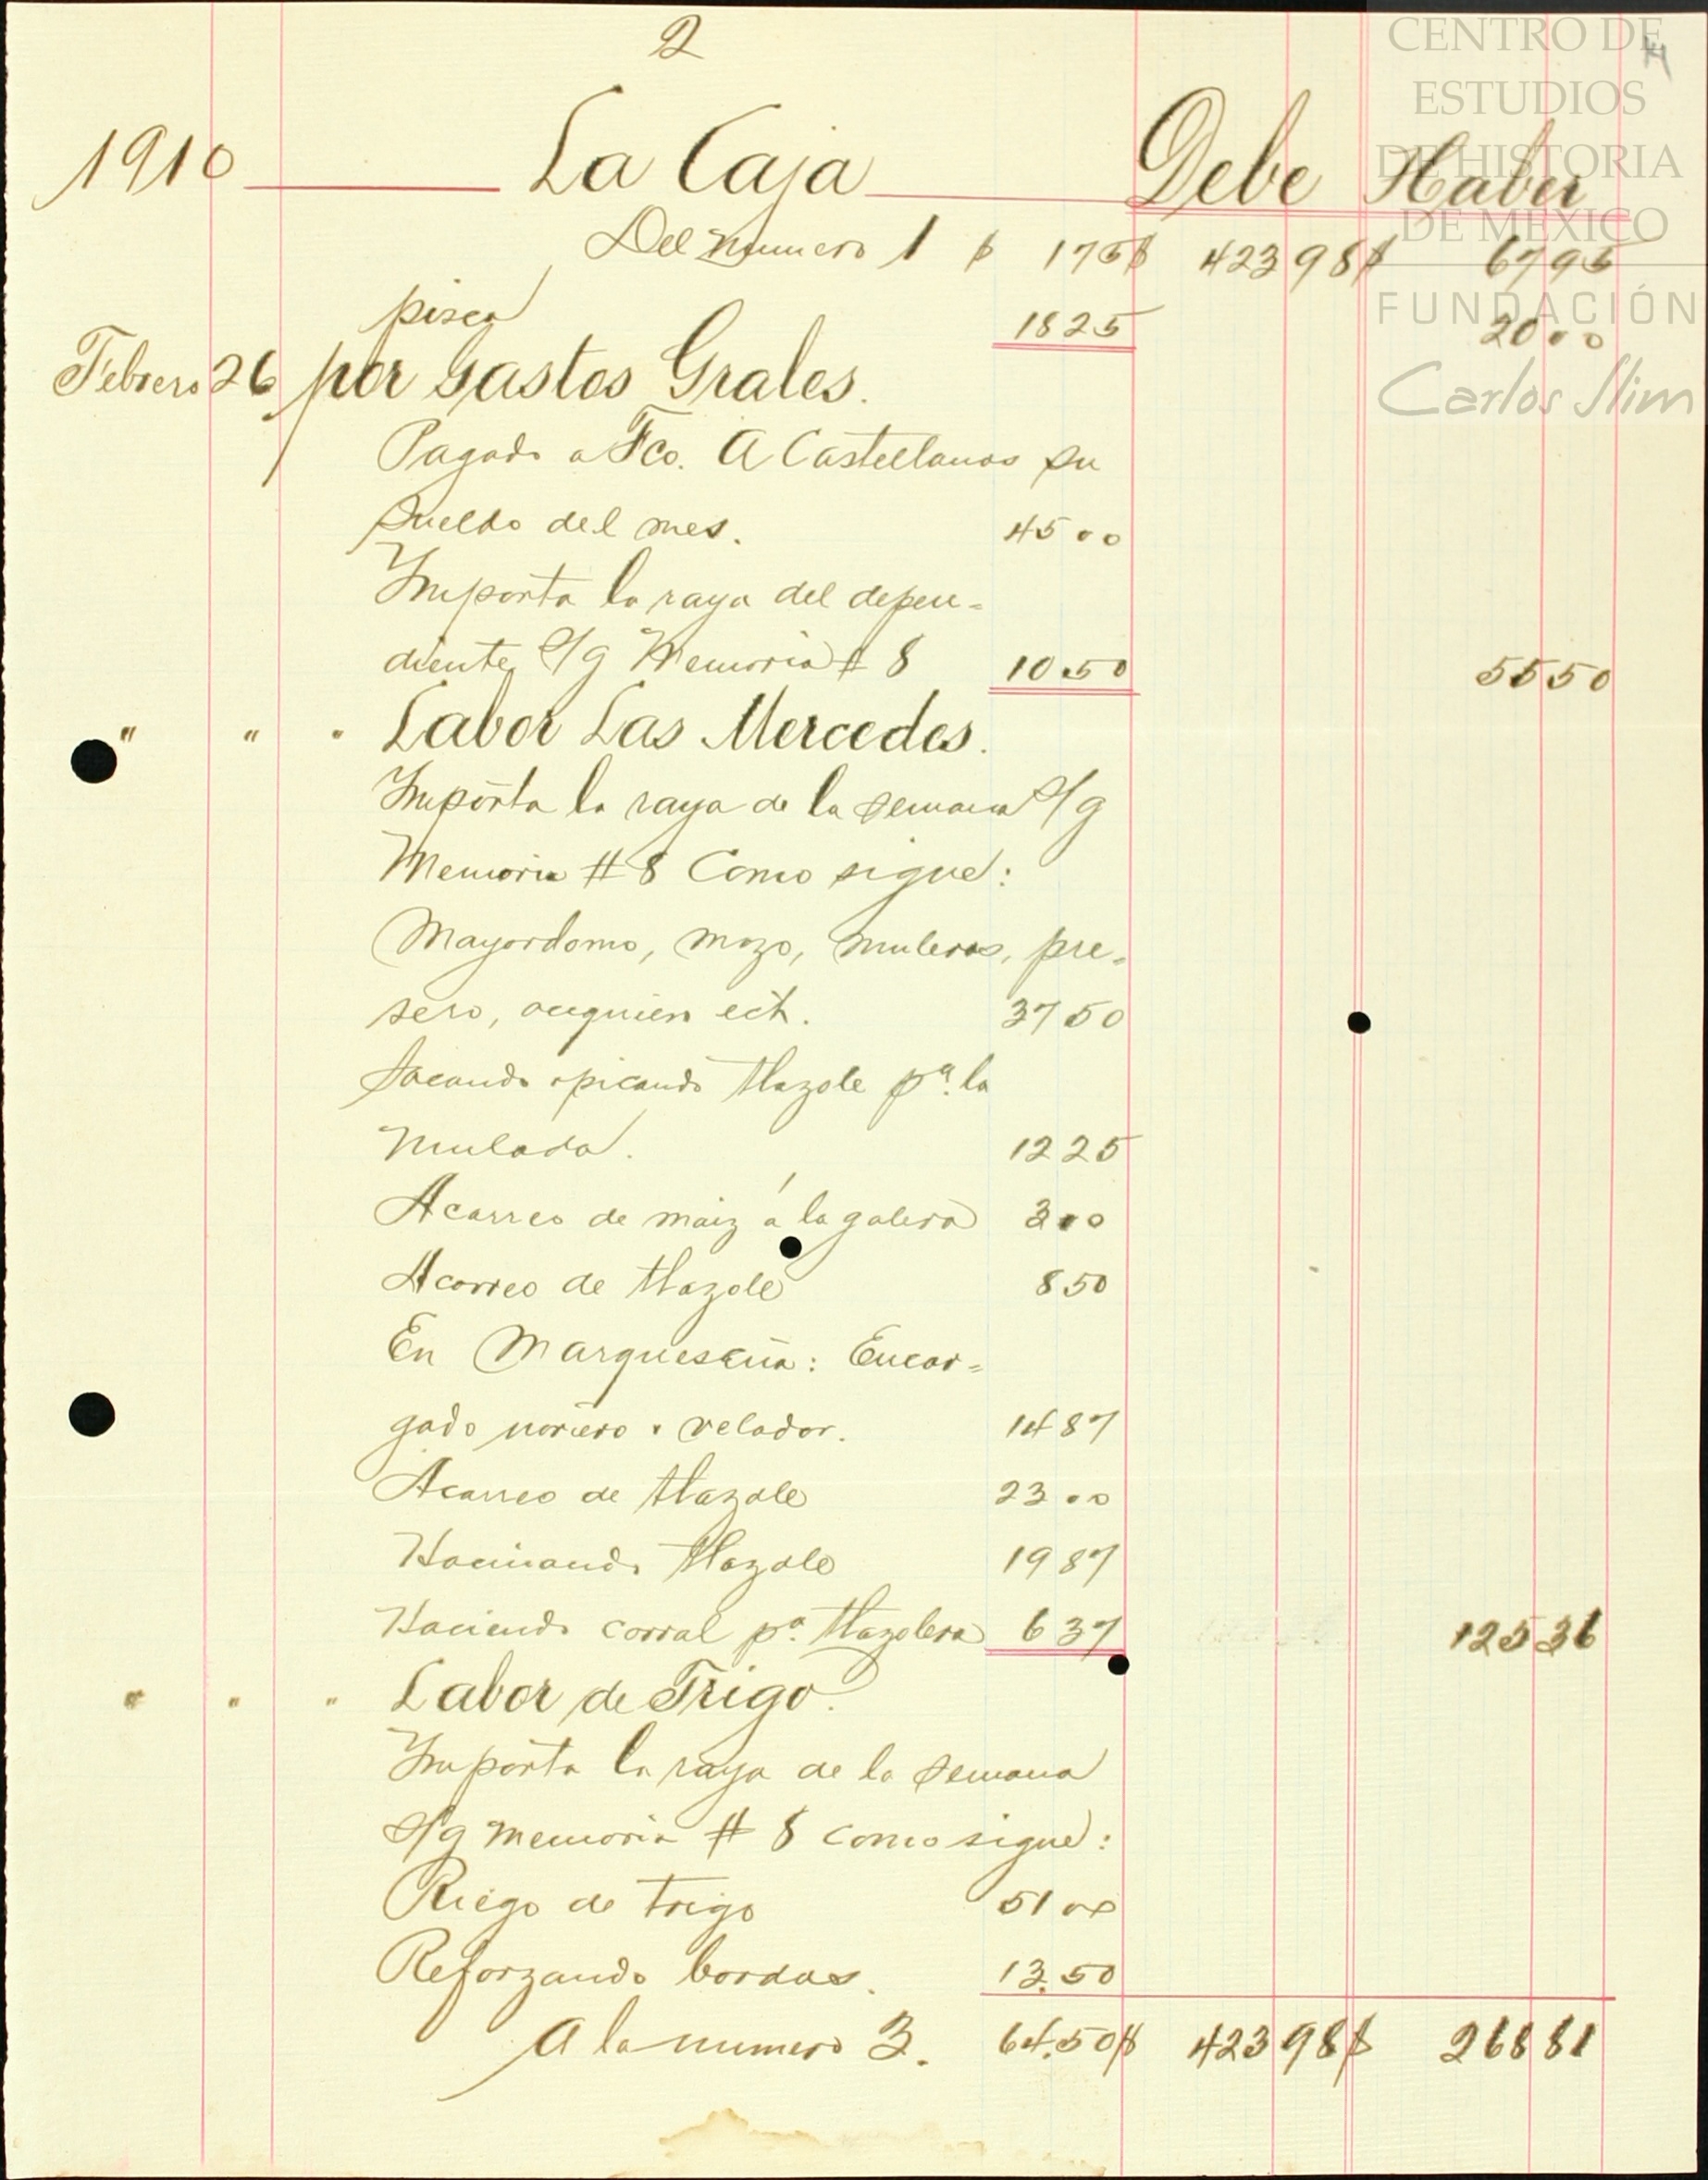 2
CENTRO DE
ESTUDIOS
DE HISTORIA
DE MEXICO
FUNDACIÓN
Carlos Slim
1910 La Caja Debe Haber
Del numero 1 $ 175 $ 423 98 $ 67 95
pisca 18 25 20 00
Febrero 26 por Gastos Grales.
Pagado a Fco. A Castellanos su
sueldo del mes. 45 00
Importa la raya del depen=
diente s/g Memoria # 8 10 50 55 50
" " " Labor Las Mercedes.
Importa la raya de la semana s/g
Memoria # 8 Como sigue:
Mayordomo, mozo, muleros, pre=
sero, ect. 37 50
Sacando picando tlazole pª. la
mulada. 12 25
Acarreo de maiz á la galera 3 00
Acarreo de tlazole 8 50
En Marqueseña: Encar=
gado noriero y velador. 14 87
Acarreo de tlazole 23 00
Hacinando tlazole 19 87
Haciendo corral pª. tlazolera 6 37 125 36
" " " Labor de Trigo.
Importa la raya de la semana
s/g memoria # 8 como sigue:
Riego de trigo 51 00
Reforzando bordos. 13.50
A la numero 3. 64.50 $ 423 98 $ 268 81